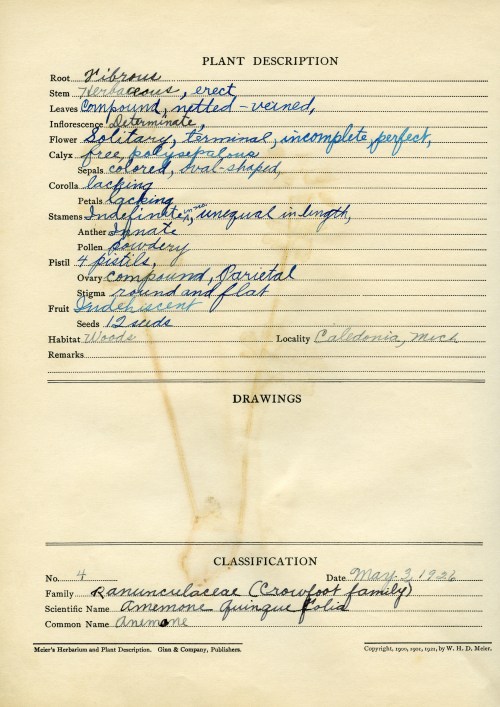 PLANT DESCRIPTION
Root Fibrous
Stem Herbaceous, erect
Leaves Compound, netted-veined,
Inflorescence Determinate,
Flower Solitary, terminal, incomplete, perfect,
Calyx free, polysepalous
Sepals colored, oval-shaped,
Corolla lacking
Petals lacking
Stamens Indefinate in no., unequal in length,
Anther Innate
Pollen powdery
Pistil 4 pistils,
Ovary compound, Parietal
Stigma round and flat
Fruit Indehiscent
Seeds 12 seeds
Habitat Woods Locality Caledonia, Mich
Remarks
DRAWINGS
CLASSIFICATION
No. 4 Date May 3, 1926
Family Ranunculaceae (Crowfoot family)
Scientific Name Amemone Quinque folia
Common Name Anemone
Meier's Herbarium and Plant Description. Ginn & Company, Publishers. Copyright, 1900, 1901, 1921, by W. H. D. Meier.